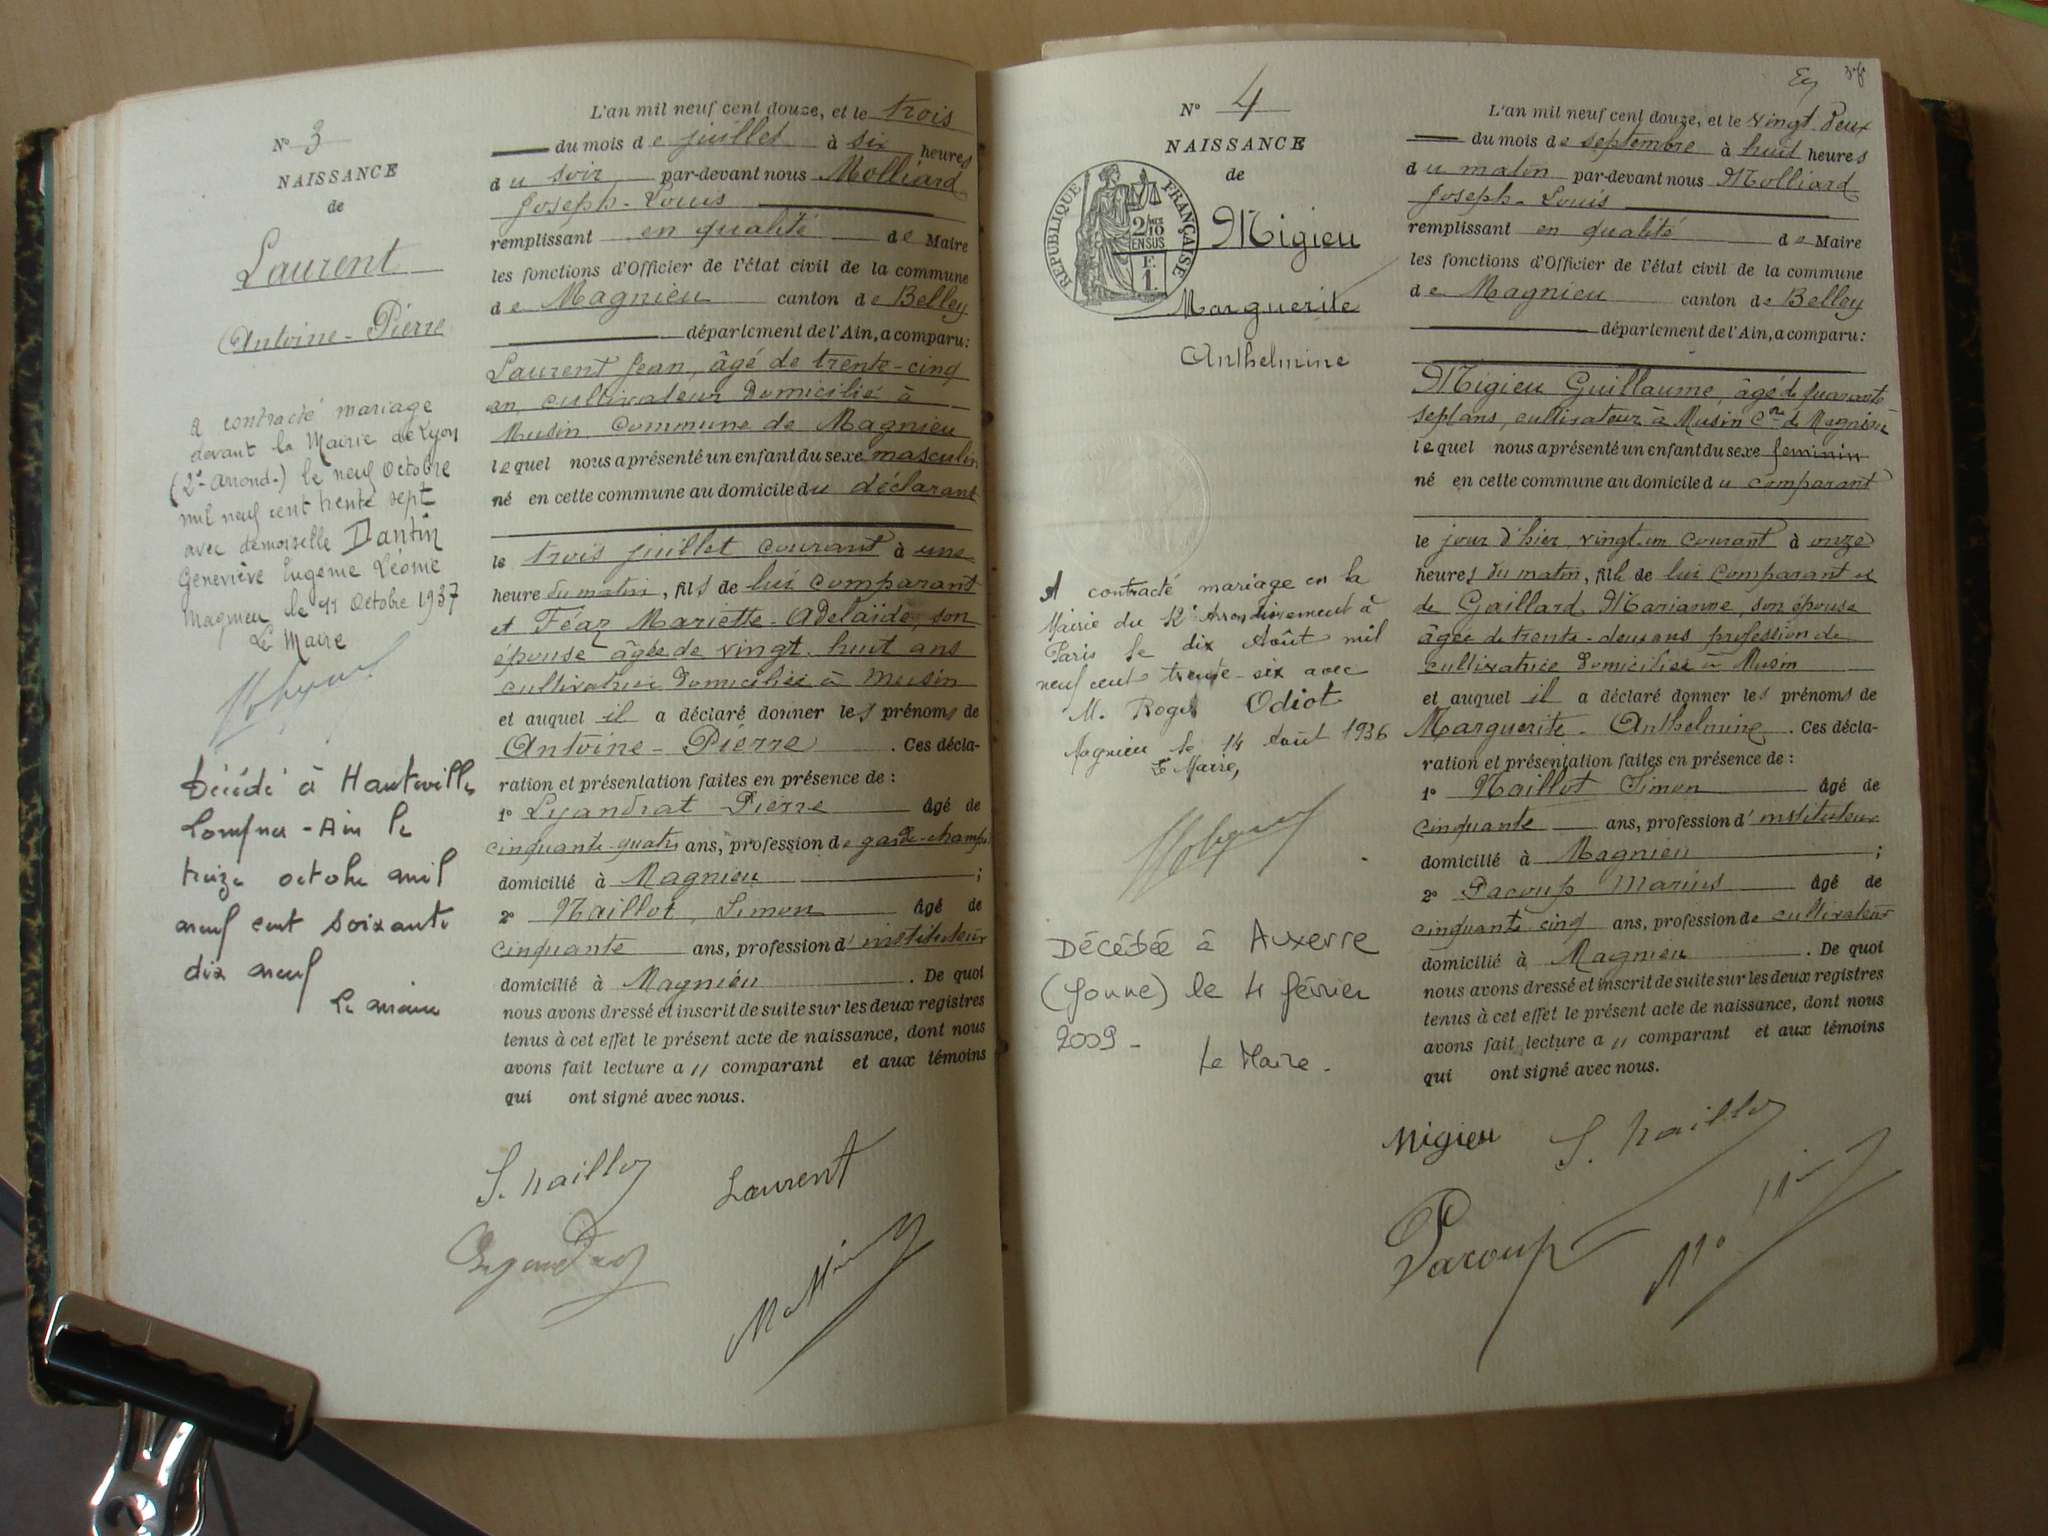 N° 3
NAISSANCE
de
Laurent
Antoine-Pierre
A contracté mariage
devant la Mairie de Lyon
(2e arrond.) le neuf Octobre
mil neuf cent trente sept
avec demoiselle Dantin
Geneviève Eugénie Léonie
Magnieu le 11 Octobre 1937
Le Maire
Décédé à Hauteville
Lompnes - Ain le
treize octobre mil
neuf cent soixante
dix neuf
Le maire
L'an mil neuf cent douze, et le trois
du mois de juillet à six heures
du soir par-devant nous Molliard
Joseph-Louis
remplissant en qualité de Maire
les fonctions d'Officier de l'état civil de la commune
de Magnieu canton de Belley
département de l'Ain, a comparu:
Laurent Jean, âgé de trente-cinq
an, cultivateur domicilié à
Musin, commune de Magnieu
lequel nous a présenté un enfant du sexe masculin
né en cette commune au domicile du déclarant
le trois juillet courant à une
heure du matin, fils de lui comparant
et Féaz Mariette-Adelaïde, son
épouse âgée de vingt-huit ans
cultivatrice domiciliée à Musin
et auquel il a déclaré donner les prénoms de
Antoine-Pierre. Ces décla-
ration et présentation faites en présence de :
1° Lyandrat Pierre âgé de
cinquante-quatre ans, profession de garde-champ
domicilié à Magnieu ;
2° Naillot, Simon âgé de
cinquante ans, profession d'instituteur
domicilié à Magnieu. De quoi
nous avons dressé et inscrit de suite sur les deux registres
tenus à cet effet le présent acte de naissance, dont nous
avons fait lecture a " comparant et aux témoins
qui ont signé avec nous.
S. Naillot
Laurent
Lyandrat
N° 4
NAISSANCE
de
RÉPUBLIQUE FRANÇAISE
2/10
EN SUS
F.
1.
Migieu
Marguerite
Anthelmine
A contracté mariage en la
Mairie du 12e Arrondissement à
Paris le dix Août mil
neuf cent trente-six avec
M. Roger Odiot
Magnieu le 14 Août 1936
Le Maire,
Décédée à Auxerre
(Yonne) le 4 février
2009 -
Le Maire.
L'an mil neuf cent douze, et le vingt-deux
du mois de septembre à huit heures
du matin par-devant nous Molliard
Joseph-Louis
remplissant en qualité de Maire
les fonctions d'Officier de l'état civil de la commune
de Magnieu canton de Belley
département de l'Ain, a comparu:
Migieu Guillaume, âgé de quarante
sept ans, cultivateur à Musin Cne de Magnieu
lequel nous a présenté un enfant du sexe féminin
né en cette commune au domicile du comparant
le jour d'hier vingt-un courant à onze
heures du matin, fille de lui comparant et
de Gaillard Marianne, son épouse
âgée de trente-deux ans profession de
cultivatrice domiciliée à Musin
et auquel il a déclaré donner les prénoms de
Marguerite-Anthelmine. Ces décla-
ration et présentation faites en présence de :
1° Naillot Simon âgé de
cinquante ans, profession d'instituteur
domicilié à Magnieu ;
2° Pacoup Marius âgé de
cinquante-cinq ans, profession de cultivateur
domicilié à Magnieu. De quoi
nous avons dressé et inscrit de suite sur les deux registres
tenus à cet effet le présent acte de naissance, dont nous
avons fait lecture a " comparant et aux témoins
qui ont signé avec nous.
Migieu
S. Naillot
Pacoup